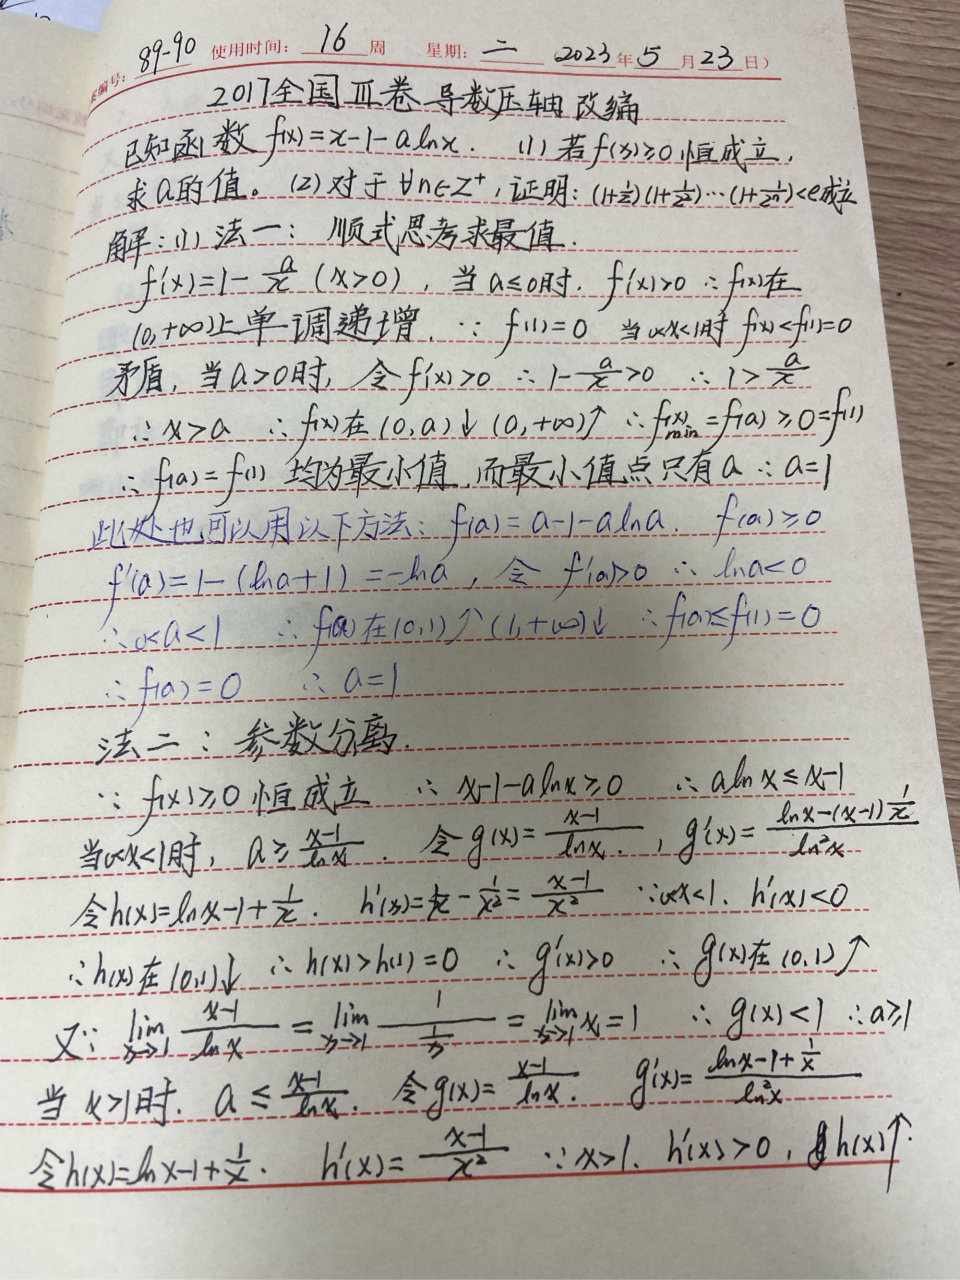 案编号: 89-90 使用时间: 16 周 星期: 二 (2023年5月23日)
2017全国Ⅲ卷 导数压轴改编
已知函数 f(x)=x-1-alnx. (1) 若f(x)≥0恒成立,
求a的值。(2) 对于∀n∈Z⁺, 证明: (1+1/2)(1+1/2²)…(1+1/2ⁿ)<e成立
解: (1) 法一: 顺式思考求最值.
f'(x)=1-a/x (x>0), 当a≤0时. f'(x)>0 ∴f(x)在
(0,+∞)上单调递增. ∵ f(1)=0 当0<x<1时 f(x)<f(1)=0
矛盾, 当a>0时, 令f'(x)>0 ∴1-a/x>0 ∴1>a/x
∴x>a ∴f(x)在(0,a)↓(0,+∞)↑ ∴f(x)min=f(a)≥0=f(1)
∴f(a)=f(1) 均为最小值, 而最小值点只有a ∴a=1
此处也可以用以下方法: f(a)=a-1-alna. f(a)≥0
f'(a)=1-(lna+1)=-lna, 令 f'(a)>0 ∴ lna<0
∴0<a<1 ∴f(a)在(0,1)↑(1,+∞)↓ ∴f(a)≤f(1)=0
∴f(a)=0 ∴a=1
法二: 参数分离.
∵ f(x)≥0恒成立 ∴x-1-alnx≥0 ∴alnx≤x-1
当0<x<1时, a≥(x-1)/lnx. 令g(x)=(x-1)/lnx., g'(x)=(lnx-(x-1)1/x)/ln²x
令h(x)=lnx-1+1/x. h'(x)=1/x-1/x²=(x-1)/x² ∵0<x<1. h'(x)<0
∴h(x)在(0,1)↓ ∴h(x)>h(1)=0 ∴g'(x)>0 ∴g(x)在(0,1)↑
又∵ lim x→1 (x-1)/lnx = lim x→1 1/(1/x) = lim x→1 x=1 ∴g(x)<1 ∴a≥1
当x>1时. a≤(x-1)/lnx. 令g(x)=(x-1)/lnx. g'(x)=(lnx-1+1/x)/ln²x
令h(x)=lnx-1+1/x. h'(x)=(x-1)/x² ∵x>1. h'(x)>0, h(x)↑.